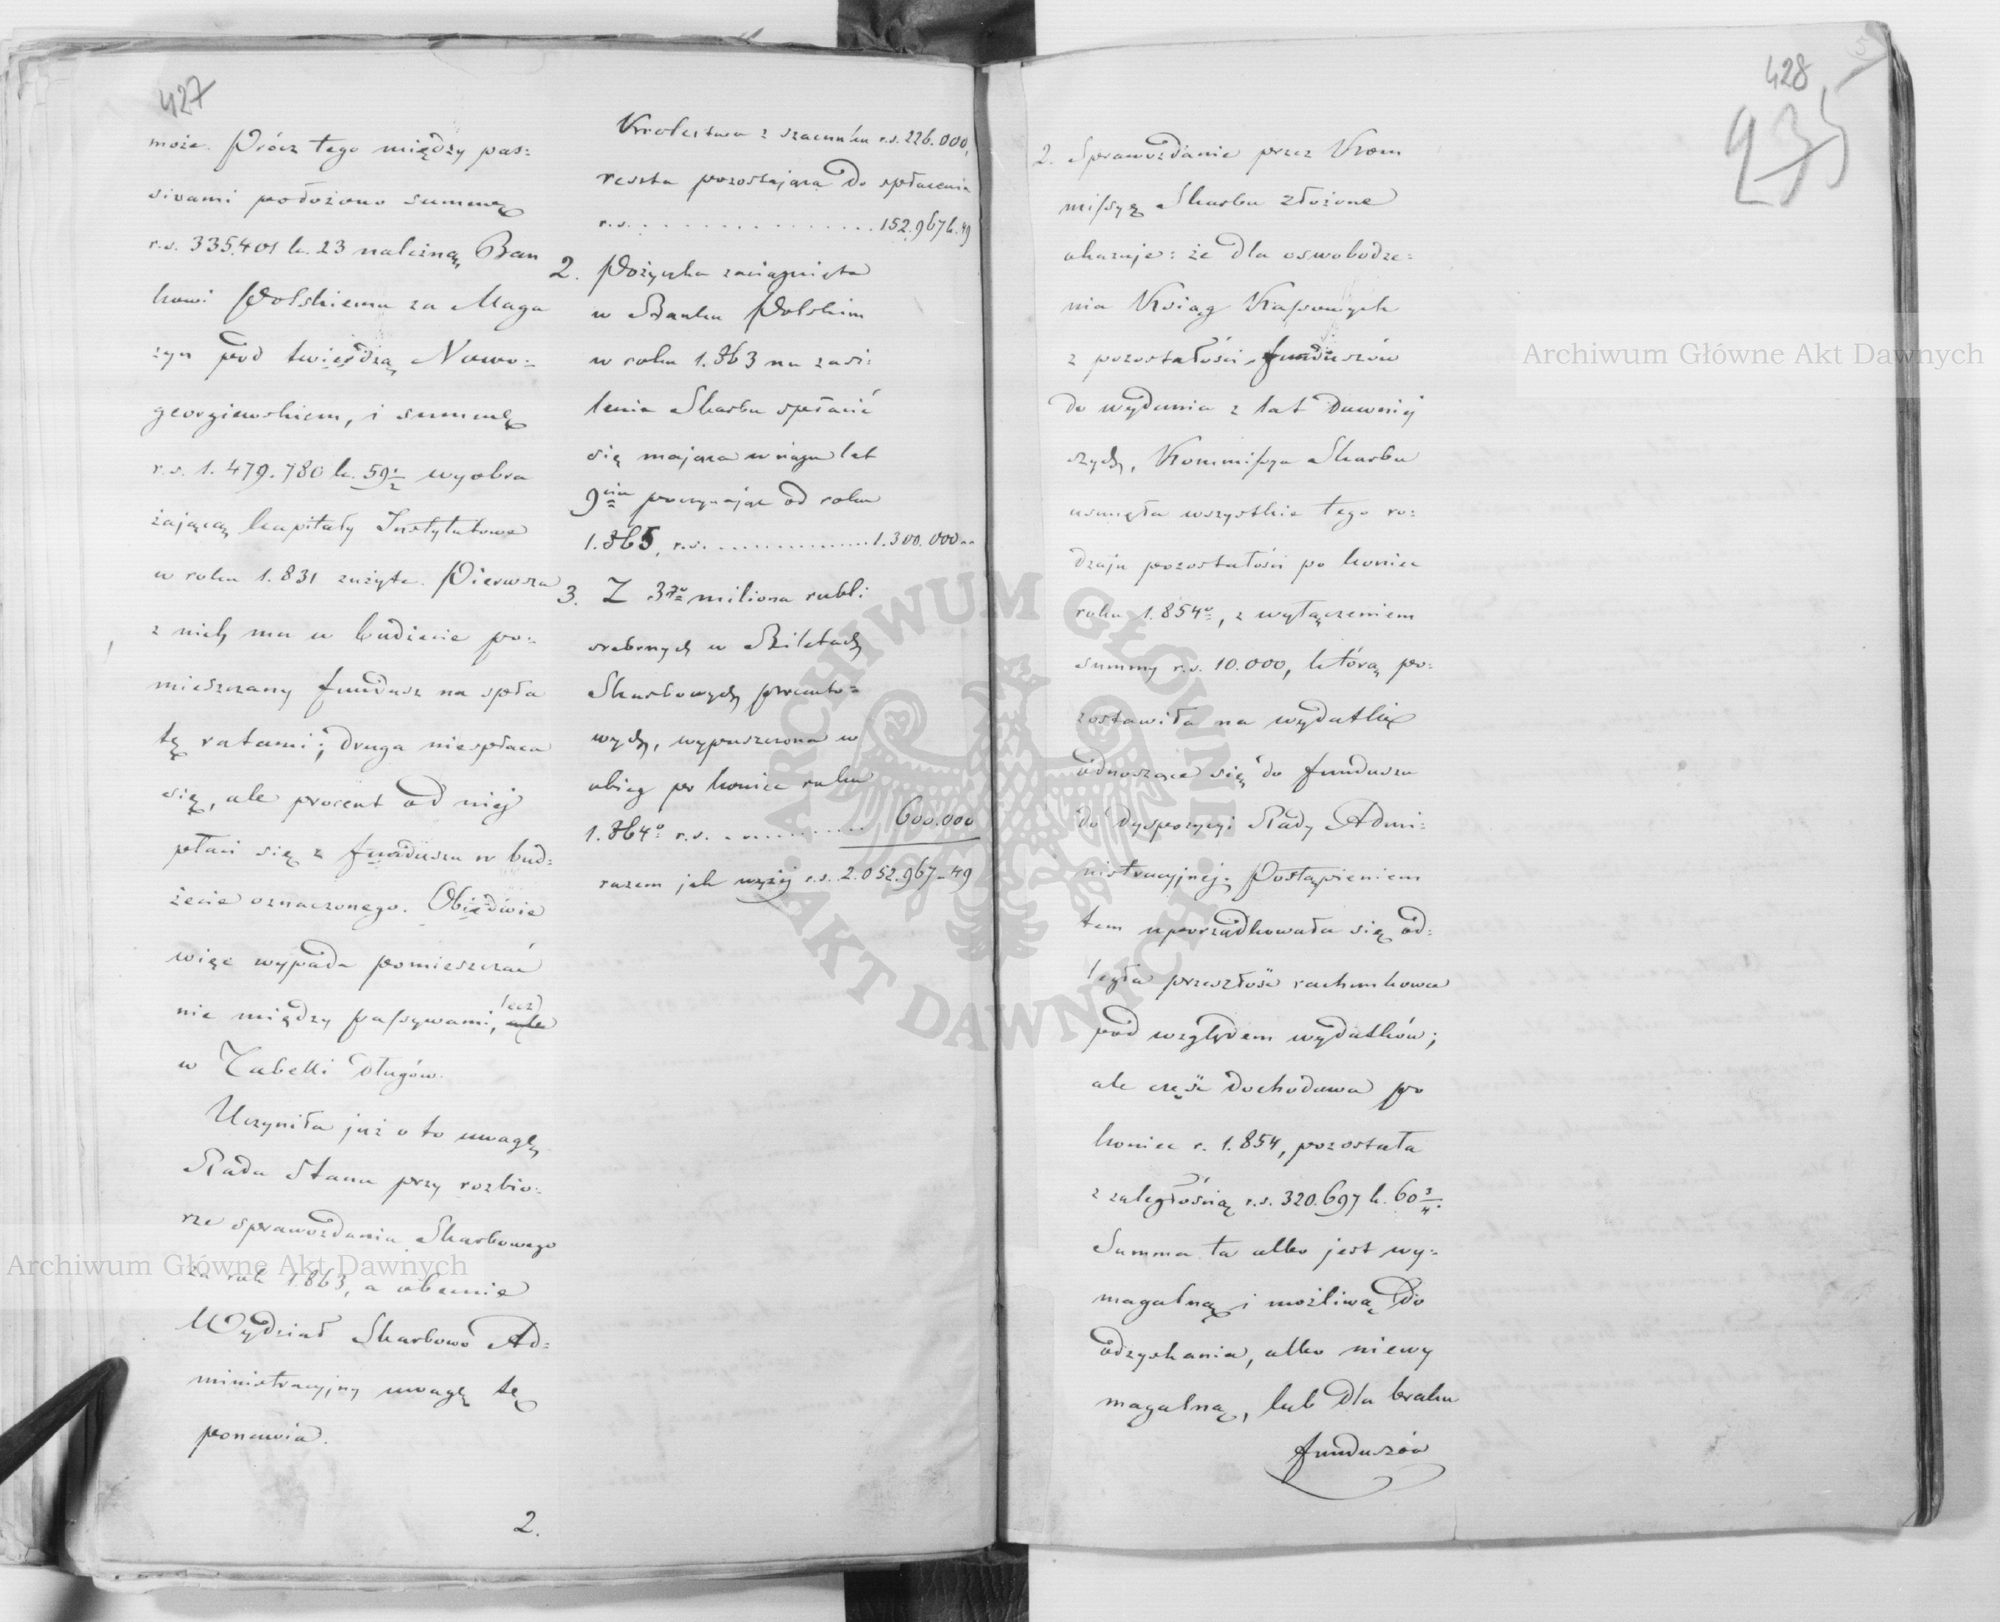 427
może. Prócz tego między pas=
sivami położono summę
r.s. 335.401 k. 23 należną Ban
kowi Polskiemu za Maga
zyn pod twierdzą Nowo=
georgiewskiem, i summę
r.s. 1.479.780 k. 59½ wyobra
żającą kapitały Instytutowe
w roku 1.831 zużyte. Pierwsza
z nich ma w budżecie po=
mieszczany fundusz na spła
tę ratami; druga niespłaca
się, ale procent od niej
płaci się z funduszu w bud=
żecie oznaczonego. Obiedwie
więc wypada pomieszczać
nie między passywami, lecz
w Tabelli długów.
Uczyniła już o to uwagę
Rada Stanu przy rozbio=
rze sprawozdania Skarbowego
za rok 1.863, a obecnie
Wydział Skarbowo Ad=
ministracyjny uwagę tę
ponawia.
2.
Królestwa z szacunku r.s. 226.000,
reszta pozostająca do spłacenia
r.s. . . . . . . . . . . . . . . 152.967 k. 49
2. Pożyczka zaciągnięta
w Banku Polskim
w roku 1.863 na zasi=
lenie Skarbu spłacić
się mająca w ciągu lat
9ciu poczynając od roku
1.865, r.s. . . . . . . . . . . . . . 1.300.000 --
3. Z 3ch miliona rubli
srebrnych w Biletach
Skarbowych procento=
wych, wypuszczona w
obieg po koniec roku
1.864o r.s. . . . . . . . . . . . 600.000
razem jak wyżej r.s. 2.052.967 - 49
428
235
2. Sprawozdanie przez Kom
missyę Skarbu złożone
okazuje: że dla oswobodze=
nia Ksiąg Kassowych
z pozostałości funduszów
do wydania z lat dawniej
szych, Kommissya Skarbu
usunęła wszystkie tego ro=
dzaju pozostałości po koniec
roku 1.854o, z wyłączeniem
summy r.s. 10.000, którą po=
zostawiła na wydatki
odnoszące się do funduszu
do dyspozycyi Rady Admi=
nistracyjnej. Postąpieniem
tem uporządkowała się od=
legła przeszłość rachunkowa
pod względem wydatków;
ale część dochodowa po
koniec r. 1.854, pozostała
z zaległością r.s. 320.697 k. 60¾.
Summa ta albo jest wy=
magalną i możliwą do
odzyskania, albo niewy
magalną, lub dla braku
funduszów
Archiwum Główne Akt Dawnych
Archiwum Główne Akt Dawnych
ARCHIWUM GŁÓWNE AKT DAWNYCH